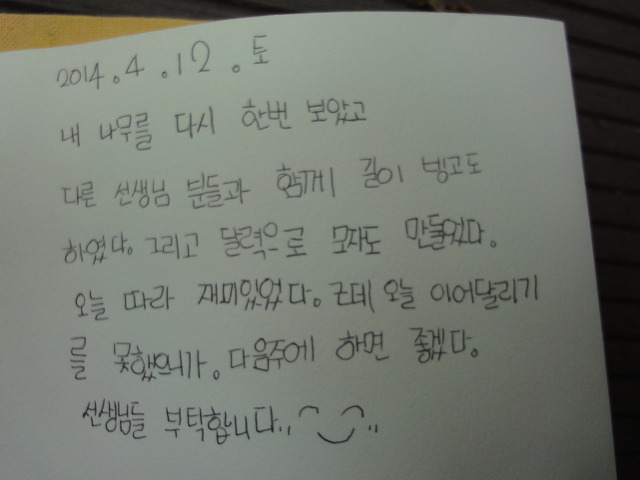 2014.4.12.토
내 나무를 다시 한번 보았고
다른 선생님 분들과 함께 길이 빙고도
하였다. 그리고 달력으로 모자도 만들었다.
오늘 따라 재미있었다. 근데 오늘 이어달리기
를 못했으니가. 다음주에 하면 좋겠다.
선생님들 부탁합니다..^‿^..